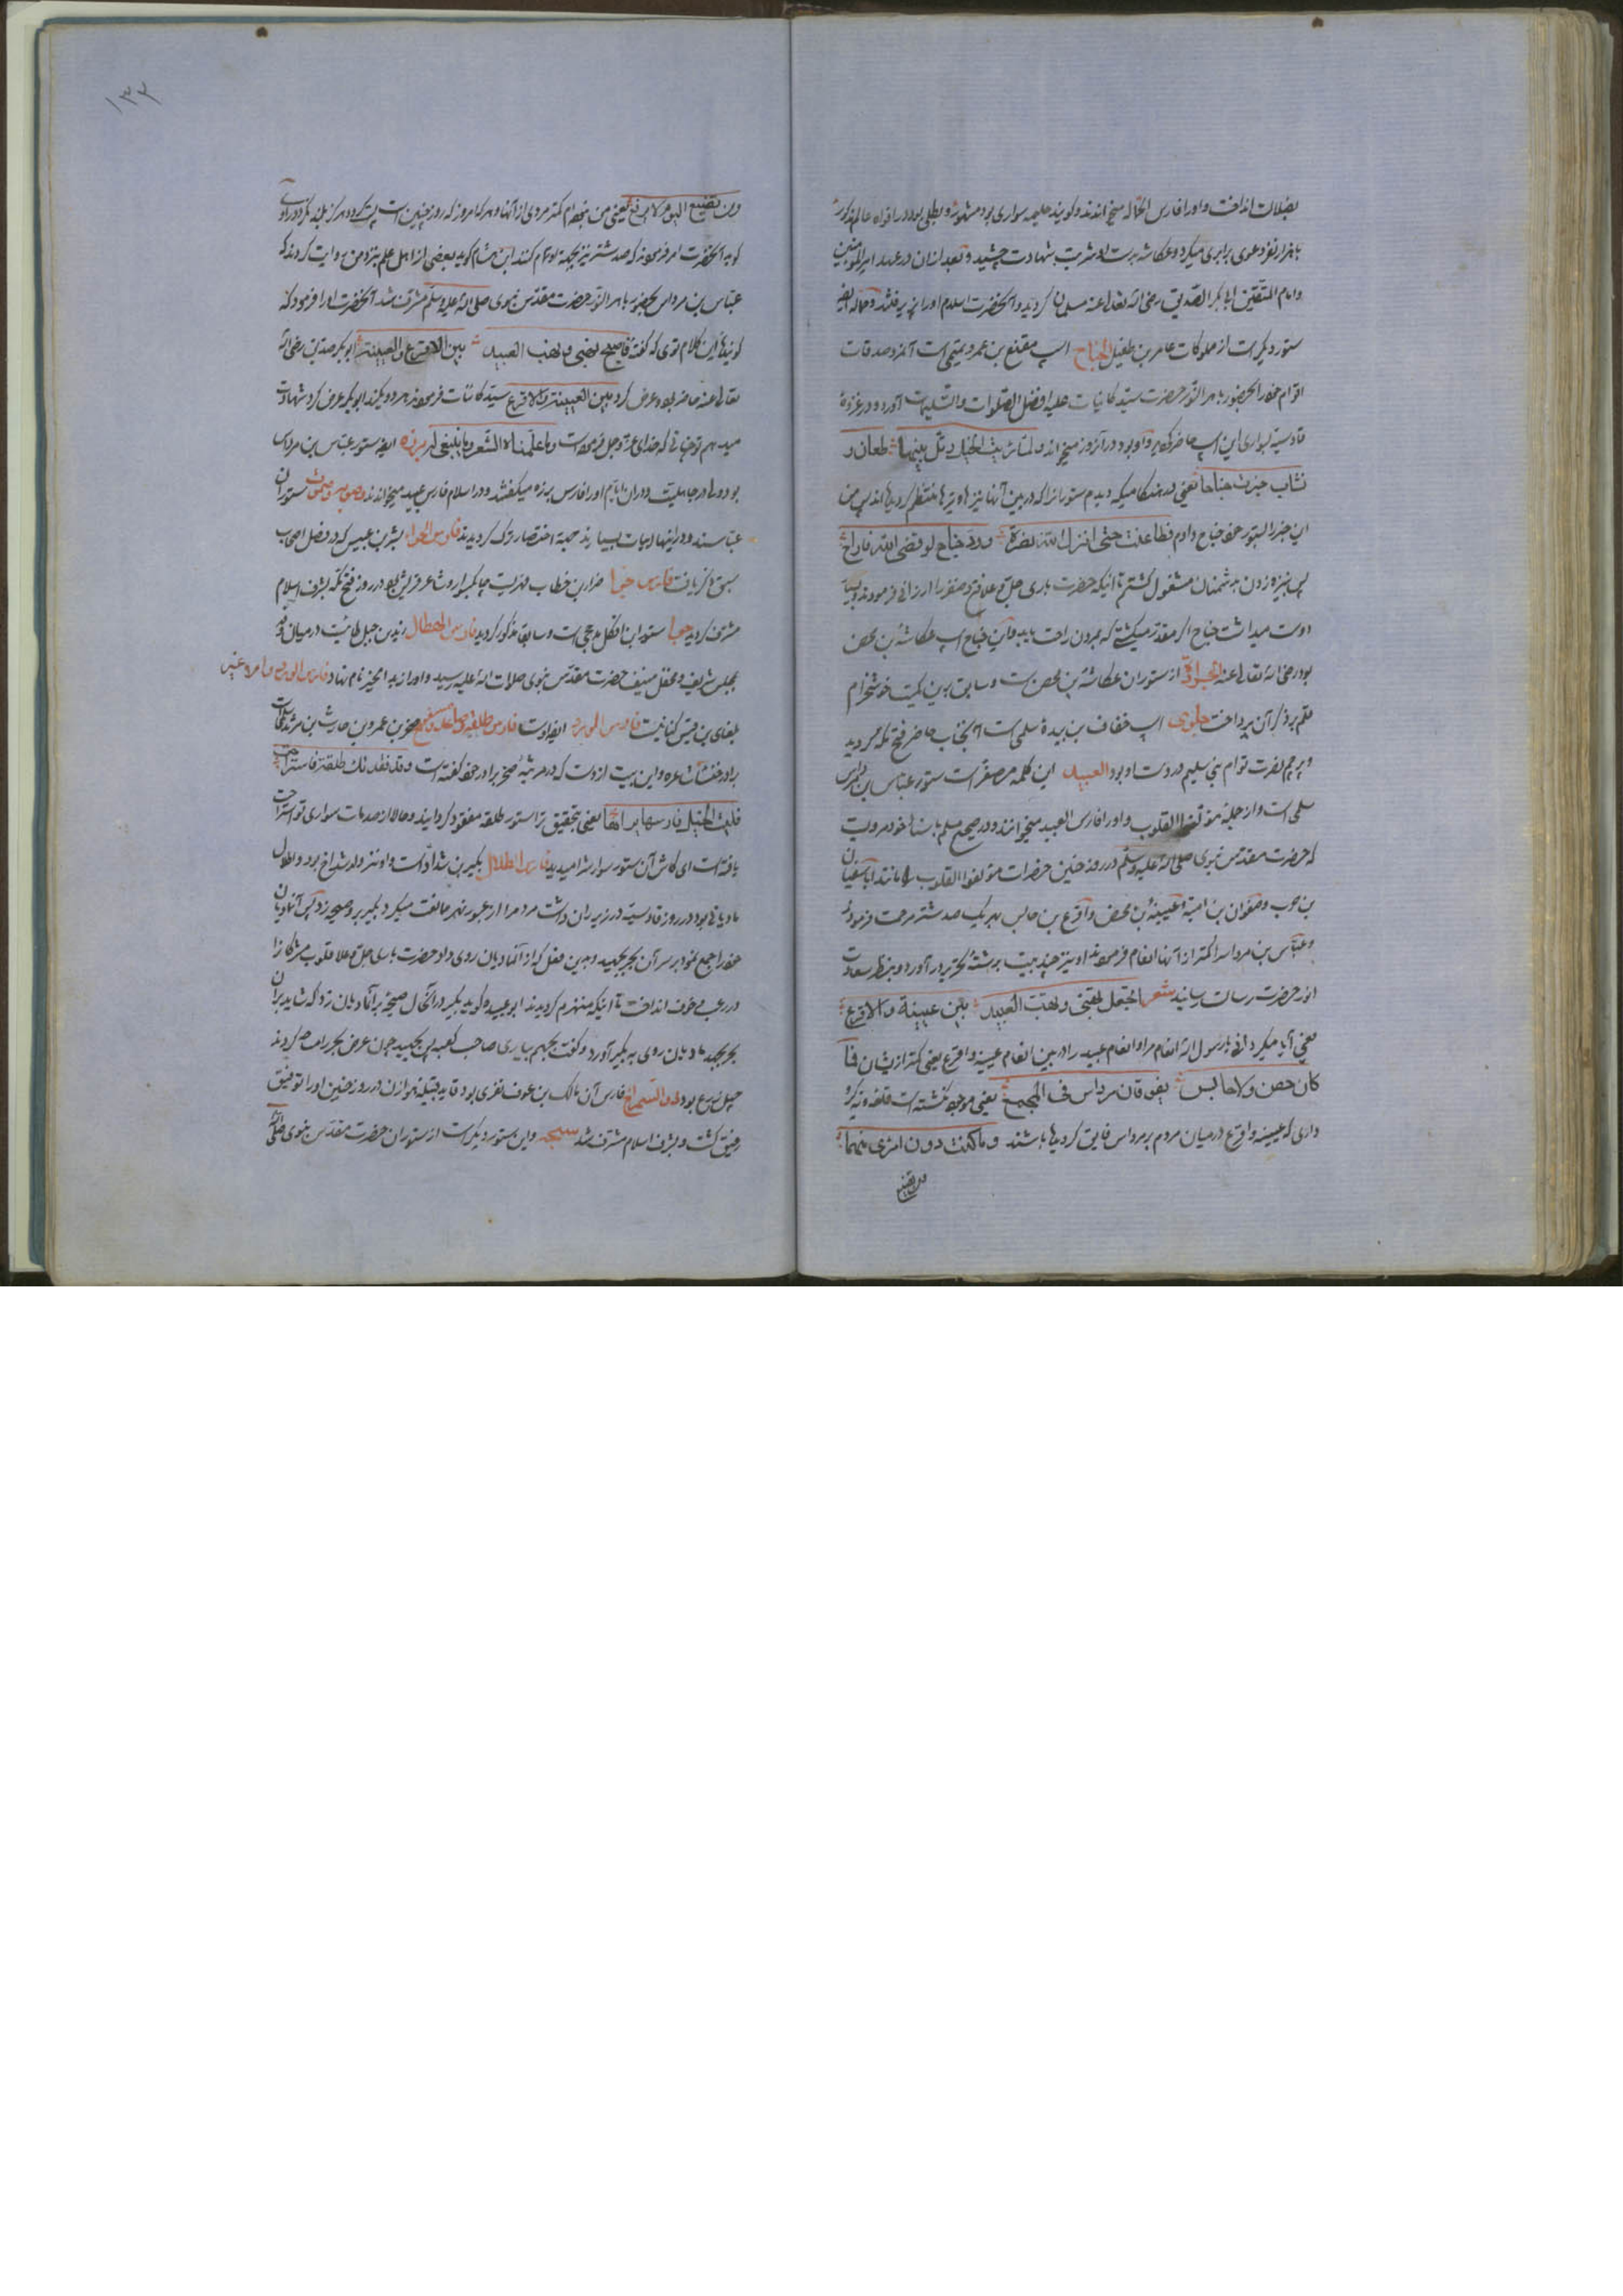 بضلالت انداخت و اورا فارس الحماله میخوانند و گویند طلیحه سواری بود مشهور و بطلی بود در افواه عالم مذکور
با هزار نفر دعوی برابری میکرد و عکاشه بدست او شربت شهادت چشید و بعد ازان در عهد امیرالمومنین
وامام المتقین ابابکر الصدیق رضی الله تعالی عنه مسلمان گردید و آنحضرت اسلام اورا پذیرفتند و حماله ایضا
ستور دیگریست از مملوکات عامر بن طفیل الجناح اسپ مقنع بن عمرو تمیمی است آنمرد صدقات
اقوام خود را بحضور باهر النور حضرت سید کاینات علیه افضل الصلوات والتسلیمات آورد و در غزوهٔ
قادسیه بسواری این اسپ حاضر کردید و او بود در آنروز میخواند ولما رئیت الخیل دبل بینها طعان و
نشاب جررت جناحا یعنی در هنگامیکه دیدم ستورانرا که در بین آنها نیزها و تیرها منتظم گردیده اند پس من
این جر را ستور خود جناح دادم فطاعنت حتی انزل الله نصره وود جناح لو قضی الله فاراح
پس بنیزه زدن بدشمنان مشغول گشتم تا اینکه حضرت باری جل وعلا فتح و ظفر را ارزانی فرمودند و بسیار
دوست میداشت جناح اگر مقدر میگشتی که بمردن راحت یابد و این جناح اسپ عکاشه بن محصن
بود رضی الله تعالی عنه الجراده از ستوران عکاشه بن محصن است و سابق برین کمیت خوشخرام
قلم بذکر آن پرداخت جلوی اسپ خفاف بن ندبه سلمی است آنجناب حاضر فتح مکه گردید
و پرچم نصرت قوام بنی سلیم در دست او بود العبید این کلمه مصغر است ستور عباس بن مرداس
سلمی است و از جمله مؤلفة القلوب و اورا فارس العبید میخوانند و در صحیح مسلم باسناد خود مرویست
که حضرت مقدس نبوی صلی الله علیه وسلم در روز حنین حضرات مؤلفة القلوب را مانند ابا سفیان
بن حرب و صفوان بن امیه و عیینه بن محض و اقرع بن حابس بهر یک صد شتر مرحمت فرمود
و عباس بن مرداس را کمتر از آنها انعام فرمودند او نیز چند بیت برشته تحریر در آورد و بنظر سعادت
اثر حضرت رسالت رسانید شعر اتجعل نهبی ونهب العبید بین عیینة والاقرع
یعنی آیا میگردانی یا رسول الله انعام مرا و انعام عبید را در بین انعام عیینه و اقرع یعنی کمتر ازیشان فما
کان حصن ولا حابس یفوقان مرداس فی المجمع یعنی موجود نگشته است
داری که عیینه و اقرع در میان مردم بر مرداس فایق گردیده باشند وما کنت دون امرئ منهما
ومن تضع
۱۳۳
ومن تضع الیوم لا یرفع یعنی من نبوده ام کمتر مردی از آنها و هر که امروز که روز حنین است پست گردد هرگز بلند نگردد راوی
گوید آنحضرت امر فرمودند که صد شتر نیز بجهة او تمام کنند ابن هشام گوید بعضی از اهل علم نزد من روایت کردند که
عباس بن مرداس بحضور باهر النور حضرت مقدس نبوی صلی الله علیه وسلم مشرف شد آنحضرت اورا فرمود که
گوینده این کلام توی که گفته فاصبح نهبی ونهب العبید بین الاقرع والعیینة ابوبکر صدیق رضی الله
تعالی عنه حاضر بود و عرض کرد بین العیینة والاقرع سید کاینات فرمودند هر دو یکند ابوبکر عرض کرد شهادت
میدهم توچنانی که خدای عز وجل فرموده است وما علمناه الشعر وما ینبغی له برزه ایضا ستور عباس بن مرداس
بود ولی در جاهلیت و در آن ایام اورا فارس برزه میگفتند و در اسلام فارس عبید میخواندند وصوبه وصموت ستوران
عباسند و در اینها ابیات بسیارند بجهة اختصار ترک گردیدند فارس الحوا بشر بن عبیس که در فضل اصحاب
سبق ذکر یافت فارس حوا ضرار بن خطاب فهریست چابک سوار و شاعر قریش بود در روز فتح مکه بشرف اسلام
مشرف گردید جوبا ستور ابن افکل مدحجی است و سابقا مذکور گردید فارس الهطال زید بن جبل طائیست در میان وفد
بمجلس شریف و محفل منیف حضرت مقدس نبوی صلاة الله علیه رسید و اورا زید الخیر نام نهاد فارس الورد
بلعای بن قیس کنانیست فارس المورد ایضا اوست فارس طلقه صخر بن عمرو بن حارث بن شرید
برادر خنساء شاعره و این بیت ازوست که در مرثیهٔ صخر برادر خود گفته است وقد فقدتک طلقة فاستراحت
فلیت الخیل فارسها یراها یعنی بتحقیق ترا ستور طلقه مفقود گردانید و حالا از صدمات سواری تو استراحت
یافته است ای کاش آن ستور سوارش را میدید فارس اطلال بکیر بن شداد است و او نیز ولد شداخ بود و اطلال
مادیانی بود در روز قادسیه در زیر ران داشت مردم را از عبور نهر ممانعت میکرد بکیر برو صیحه زد پس آنمادیان
خود را جمع نمود بر سر آن بحر بجهید و بدین فعل که از آنمادیان روی داد حضرت باری جل وعلا قلوب مشرکانرا
در رعب و خوف انداخت تا اینکه منهزم گردیدند ابو عبیده گوید بکیر در آنحال صیحه بر آنمادیان زد که شاید بر آن
بحر بجهد مادیان روی به بکیر آورد و گفت بجهم بیاری صاحب کعبه پس بجهید چون عرض بحر را مساحه کردند
چهل ذرع بود فارس آن مالک بن عوف نضری بود قاید قبیله هوازن در روز حنین اورا توفیق
رفیق گشت و بشرف اسلام مشرف شد سبحه و این ستور دیگر است از ستوران حضرت مقدس نبوی صلی الله